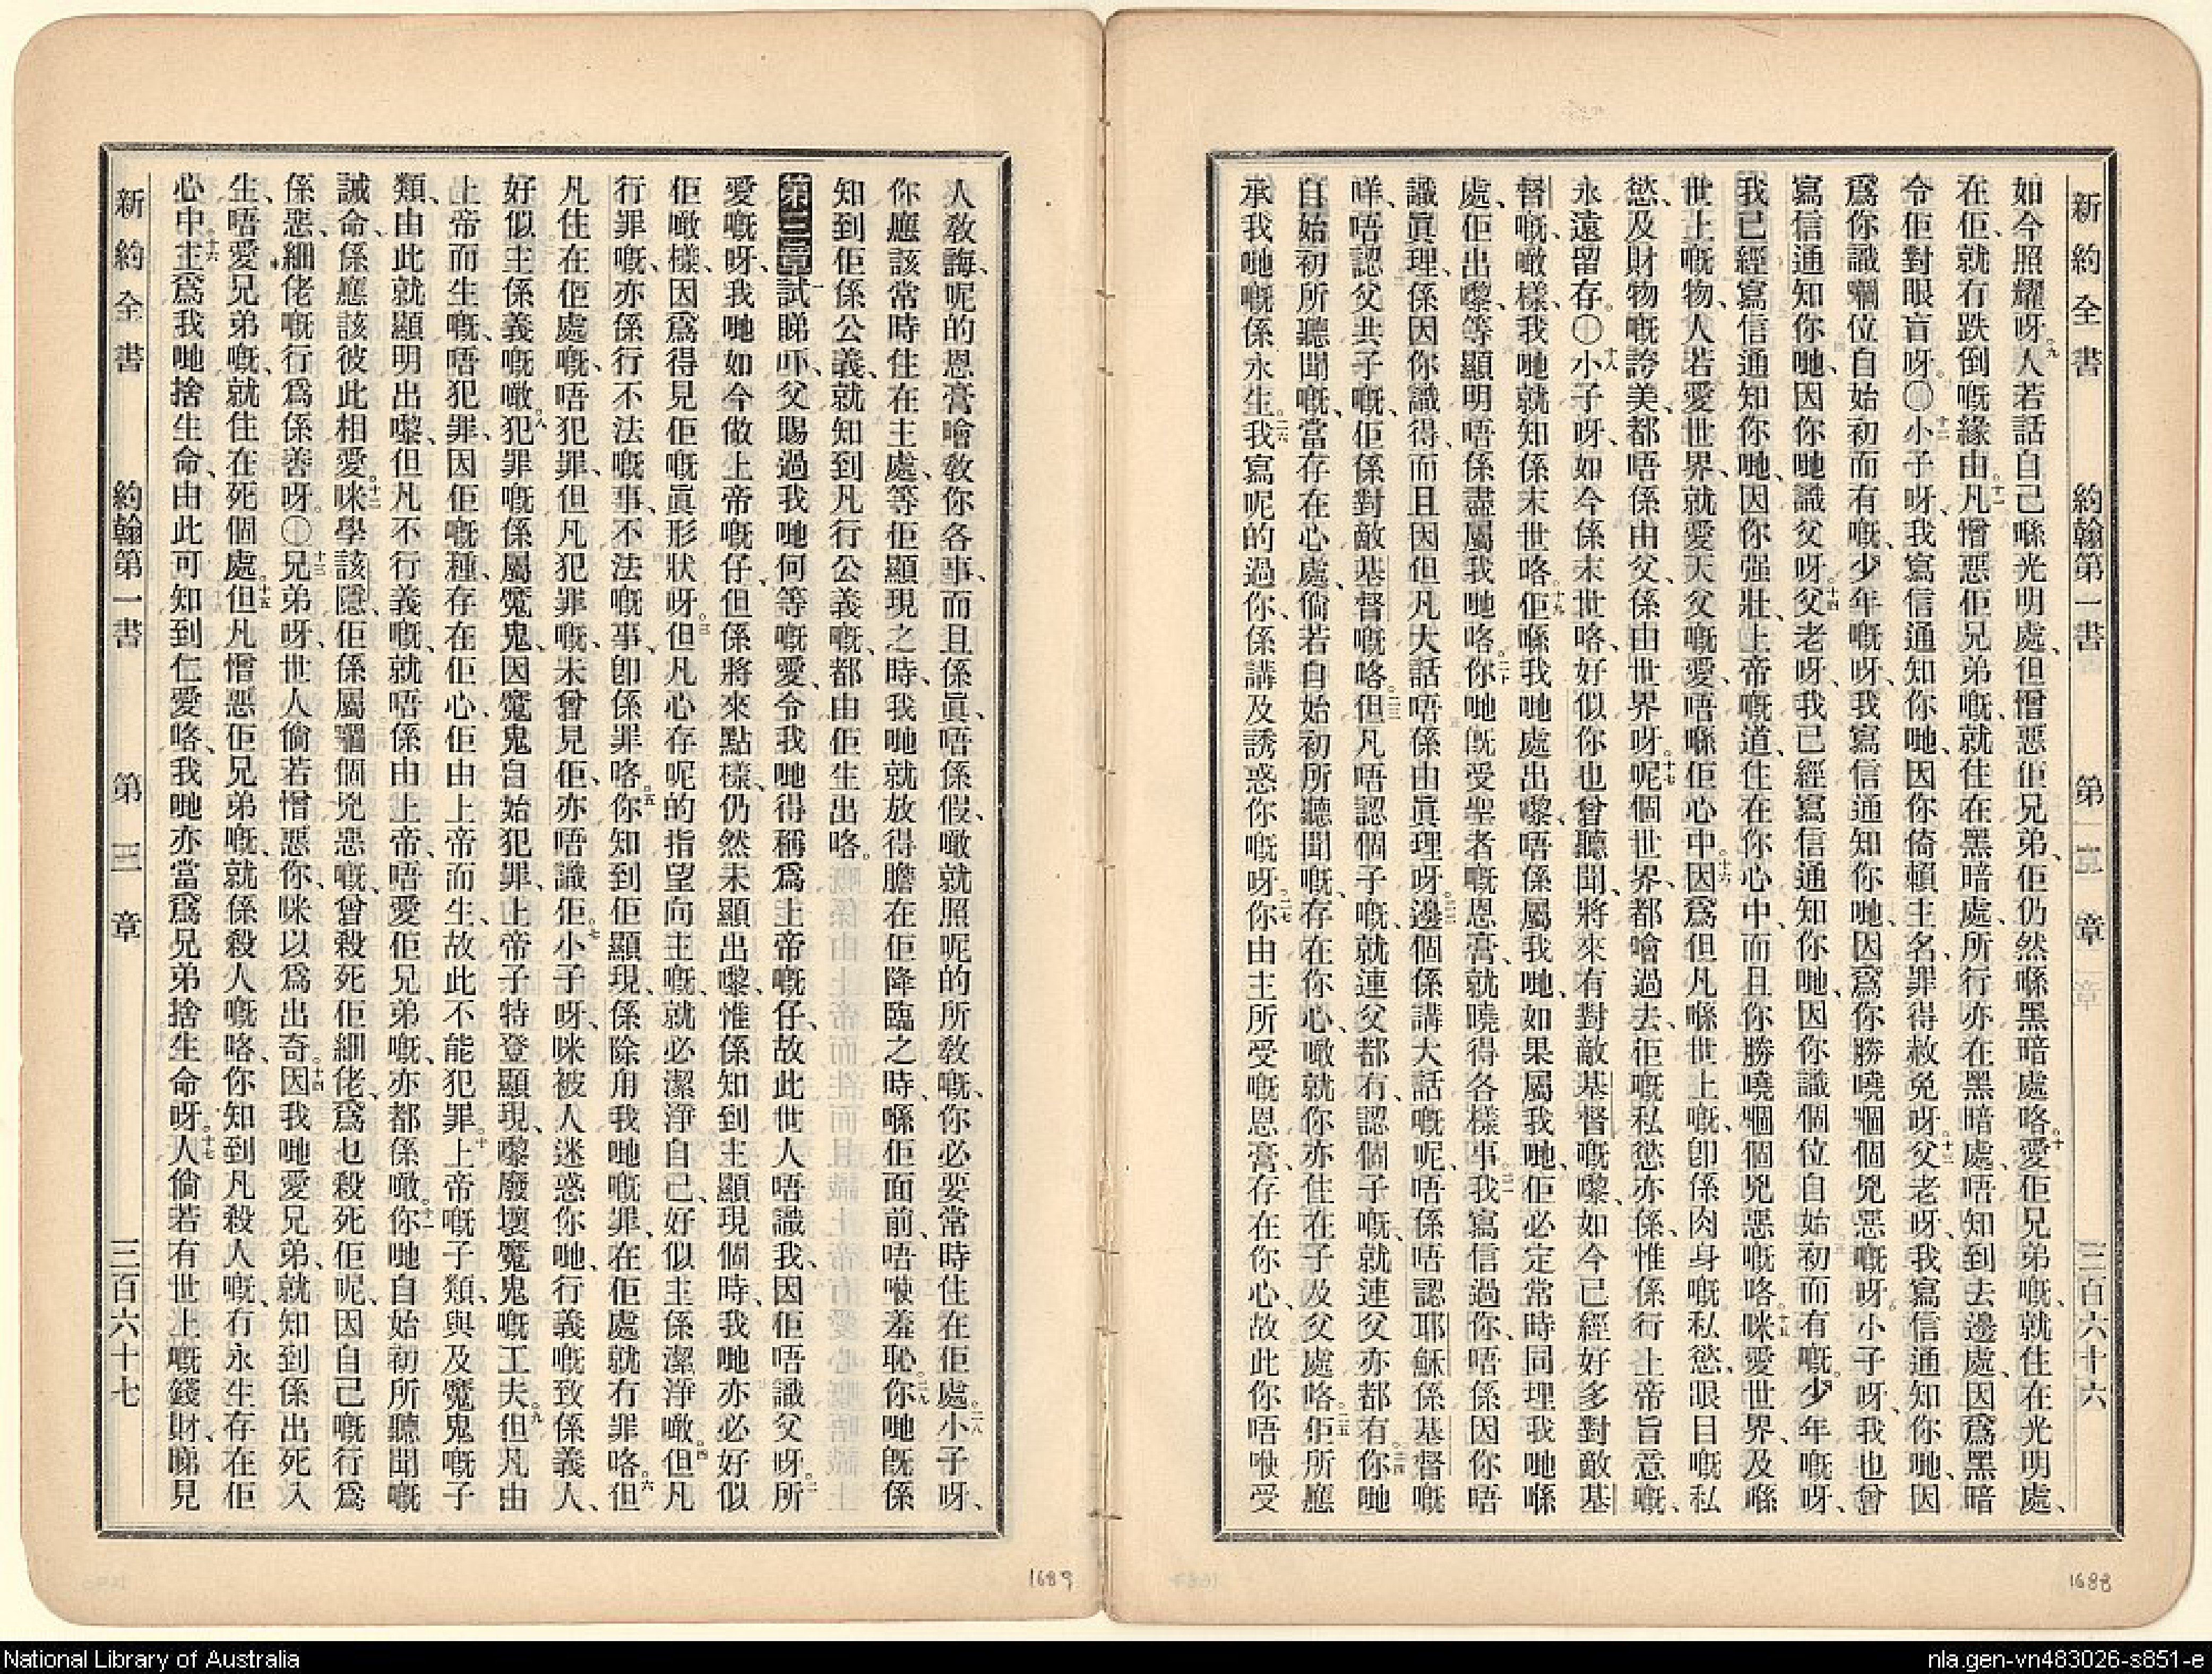 新約全書 約翰第一書 第二章 三百六十六
如今照耀呀。九人若話自己喺光明處、但憎惡佢兄弟、佢仍然喺黑暗處咯。十愛佢兄弟嘅、就住在光明處、
在佢、就冇跌倒嘅緣由。十一凡憎惡佢兄弟嘅、就住在黑暗處、所行亦在黑暗處、唔知到去邊處、因爲黑暗
令佢對眼盲呀。〇十二小子呀、我寫信通知你哋、因你倚賴主名、罪得赦免呀。十三父老呀、我寫信通知你哋、因
爲你識嗰位自始初而有嘅、少年嘅呀、我寫信通知你哋、因爲你勝曉嗰個兇惡嘅呀、小子呀、我也曾
寫信通知你哋、因你哋識父呀。十四父老呀、我已經寫信通知你哋、因你識個位自始初而有嘅。少年嘅呀、
我已經寫信通知你哋、因你强壯、上帝嘅道、住在你心中、而且你勝曉嗰個兇惡嘅咯。十五咪愛世界、及喺
世上嘅物、人若愛世界、就愛天父嘅愛、唔喺佢心中。十六因爲但凡喺世上嘅、卽係肉身嘅私慾、眼目嘅私
慾、及財物嘅誇美、都唔係由父、係由世界呀。十七呢個世界、都噲過去、佢嘅私慾亦係、惟係行上帝旨意嘅、
永遠留存。〇十八小子呀、如今係末世咯、好似你也曾聽聞、將來有對敵基督嘅嚟、如今已經好多對敵基
督嘅、噉樣、我哋就知係末世咯。十九佢喺我哋處出嚟、唔係屬我哋、如果屬我哋、佢必定常時同埋我哋喺
處、佢出嚟、等顯明唔係盡屬我哋咯。二十你哋旣受聖者嘅恩膏、就曉得各樣事。二一我寫信過你、唔係因你唔
識眞理、係因你識得、而且因但凡大話唔係由眞理呀。二二邊個係講大話嘅呢、唔係唔認耶穌係基督嘅
咩、唔認父共子嘅、佢係對敵基督嘅咯。二三但凡唔認個子嘅、就連父都冇、認個子嘅、就連父亦都有。二四你哋
自始初所聽聞嘅、當存在心處、倘若自始初所聽聞嘅、存在你心、噉就你亦住在子及父處咯。二五佢所應
承我哋嘅係永生。二六我寫呢的過你、係講及誘惑你嘅呀。二七你由主所受嘅恩膏、存在你心、故此你唔使受
人敎誨、呢的恩膏噲敎你各事、而且係眞、唔係假、噉就照呢的所敎嘅、你必要常時住在佢處。二八小子呀、
你應該常時住在主處、等佢顯現之時、我哋就放得膽在佢降臨之時、喺佢面前、唔使羞恥。二九你哋旣係
知到佢係公義、就知到凡行公義嘅、都由佢生出咯。
第三章一試睇吓、父賜過我哋何等嘅愛、令我哋得稱爲上帝嘅仔、故此世人唔識我、因佢唔識父呀。二所
愛嘅呀、我哋如今做上帝嘅仔、但係將來點樣、仍然未顯出嚟、惟係知到主顯現個時、我哋亦必好似
佢噉樣、因爲得見佢嘅眞形狀呀。三但凡心存呢的指望向主嘅、就必潔淨自己、好似主係潔淨噉。四但凡
行罪嘅、亦係行不法嘅事、不法嘅事、卽係罪咯。五你知到佢顯現、係除甪我哋嘅罪、在佢處就冇罪咯。六但
凡住在佢處嘅、唔犯罪、但凡犯罪嘅、未曾見佢、亦唔識佢。七小子呀、咪被人迷惑你哋、行義嘅致係義人、
好似主係義嘅噉。八犯罪嘅、係屬魔鬼、因魔鬼自始犯罪、上帝子特登顯現、嚟廢壞魔鬼嘅工夫。九但凡由
上帝而生嘅、唔犯罪、因佢嘅種、存在佢心、佢由上帝而生、故此不能犯罪。十上帝嘅子類、與及魔鬼嘅子
類、由此就顯明出嚟、但凡不行義嘅、就唔係由上帝、唔愛佢兄弟嘅、亦都係噉。十一你哋自始初所聽聞嘅
誡命、係應該彼此相愛。十二咪學該隱、佢係屬嗰個兇惡嘅、曾殺死佢細佬、爲乜殺死佢呢、因自己嘅行爲
係惡、細佬嘅行爲係善呀。〇十三兄弟呀、世人倘若憎惡你、咪以爲出奇。十四因我哋愛兄弟、就知到係出死入
生、唔愛兄弟嘅、就住在死個處。十五但凡憎惡佢兄弟嘅、就係殺人嘅咯、你知到凡殺人嘅、冇永生存在佢
心中。十六主爲我哋捨生命、由此可知到仁愛咯、我哋亦當爲兄弟捨生命呀。十七人倘若有世上嘅錢財、睇見
新約全書 約翰第一書 第三章 三百六十七
1689
1688
National Library of Australia
nla.gen-vn483026-s851-e